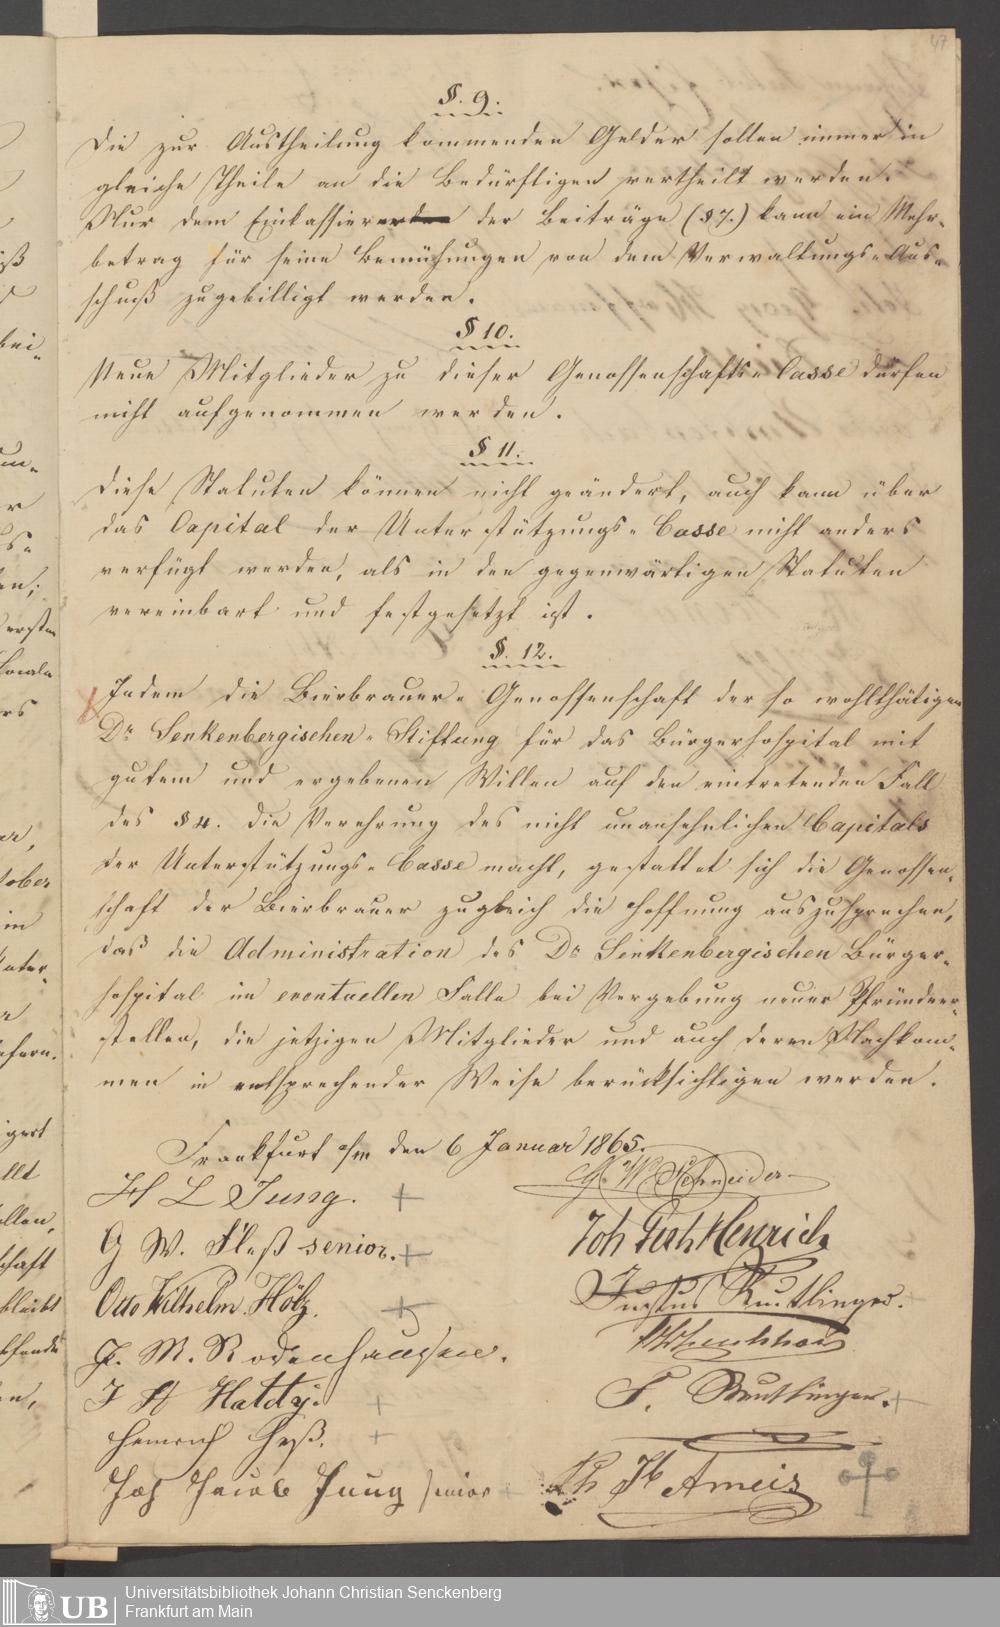 47
§. 9.
Die zur Austheilung kommenden Gelder sollen immer in
gleiche Theile an die Bedürftigen vertheilt werden.
Nur dem Einkassierer der Beiträge (§ 7.) kann ein Mehr-
betrag für seine Bemühungen von dem Verwaltungs-Aus-
schuß zugebilligt werden.
§ 10.
Neue Mitglieder zu dieser Genossenschafts-Casse dürfen
nicht aufgenommen werden.
§ 11.
Diese Statuten können nicht geändert, auch kann über
das Capital der Unterstützungs-Casse nicht anders
verfügt werden, als in den gegenwärtigen Statuten
vereinbart und festgesetzt ist.
§. 12.
Indem die Bierbrauer-Genossenschaft der so wohlthätigen
Dr Senkenbergischen-Stiftung für das Bürgerhospital mit
gutem und ergebenen Willen auf den eintretenden Fall
des § 4. die Verehrung des nicht unansehnlichen Capitals
der Unterstützungs-Casse macht, gestattet sich die Genossen-
schaft der Bierbrauer zugleich die Hoffnung auszusprechen,
daß die Administration des Dr Senkenbergischen Bürger-
hospital im eventuellen Falle bei Vergebung neuer Pfründner-
stellen, die jetzigen Mitglieder und auch deren Nachkom-
men in entsprechender Weise berücksichtigen werden.
Frankfurt a/m den 6 Januar 1865.
G. W. Schneider
H L Jung.
G W. Fleß senior.
Joh Henrich
Otto Wilhelm Hölz.
Justus Reutlinger.
J. M. Rodenhausen.
J H Hatdy.
F. Reutlinger.
Heinrich Heyß.
Joh Jacob Jung senior
Ph Jb Ameis
UB
Universitätsbibliothek Johann Christian Senckenberg
Frankfurt am Main